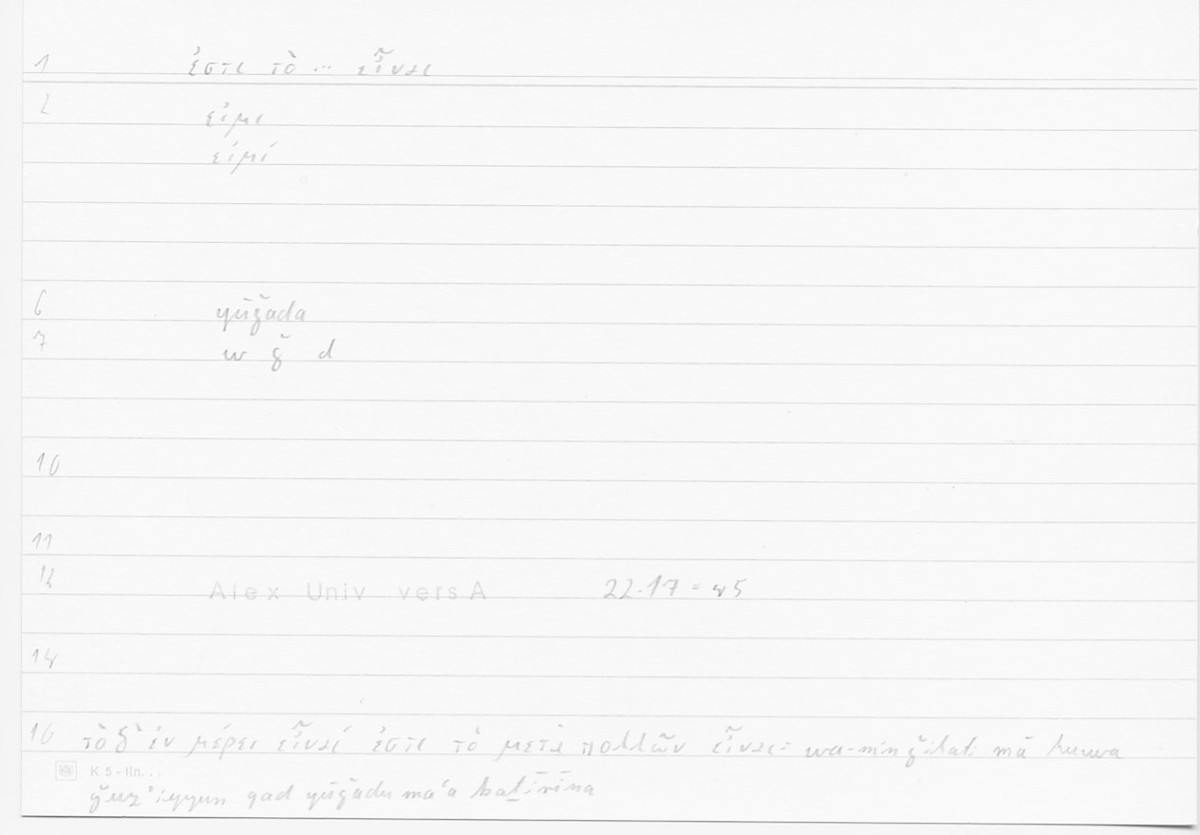 1 ἐστι τὸ ... εἶναι
2 εἰμι
εἰμί
6 yūǧada
7 w ǧ d
10
11
12 Alex Univ vers A 22.17 = w5
14
16 τὸ δ' ἐν μέρει εἶναί ἐστι τὸ μετὰ πολλῶν εἶναι = wa-min ǧilati mā huwa
K 5 - lin...
ǧuz'iyyun qad yūǧadu ma'a kaṯīrīna